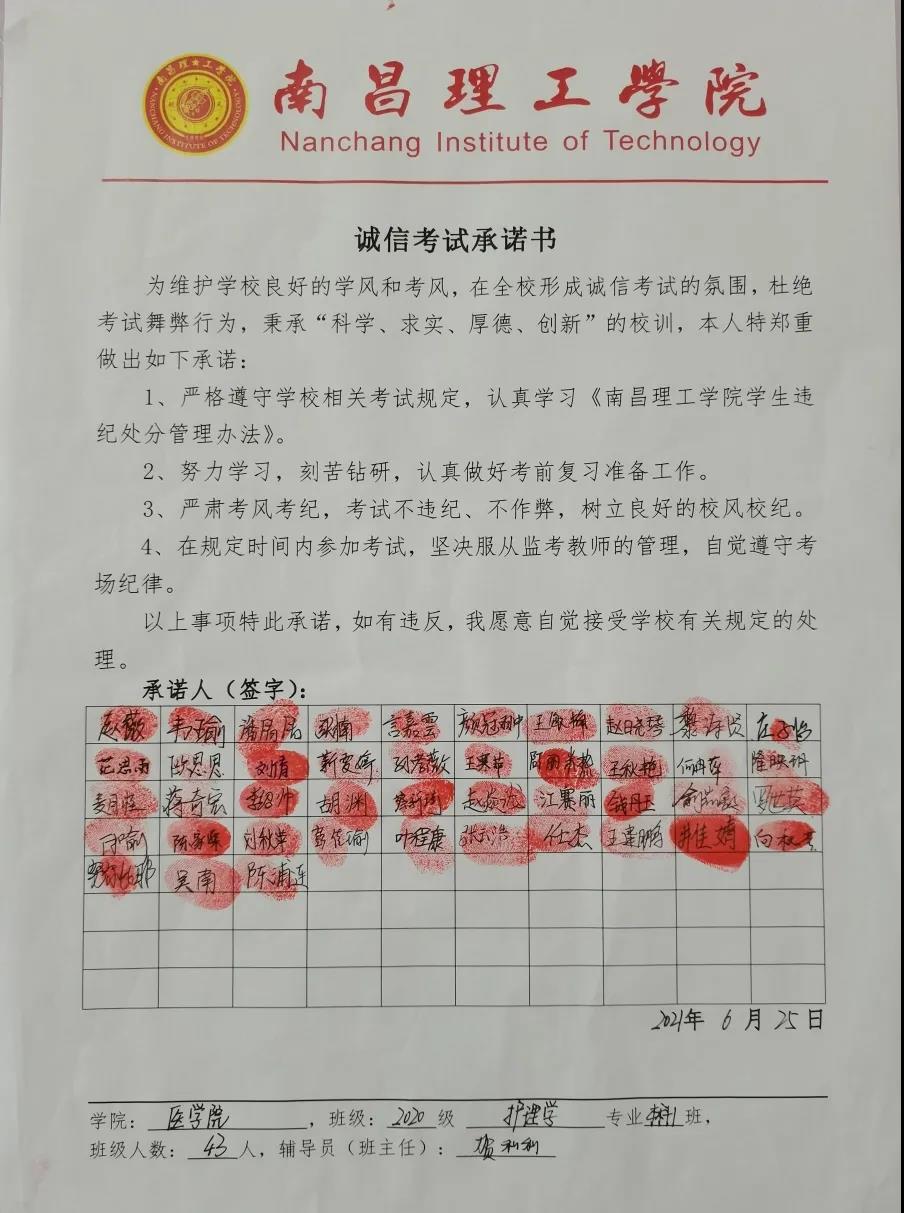 南昌理工學院
Nanchang Institute of Technology
诚信考试承诺书
为维护学校良好的学风和考风，在全校形成诚信考试的氛围，杜绝
考试舞弊行为，秉承“科学、求实、厚德、创新”的校训，本人特郑重
做出如下承诺：
1、严格遵守学校相关考试规定，认真学习《南昌理工学院学生违
纪处分管理办法》。
2、努力学习，刻苦钻研，认真做好考前复习准备工作。
3、严肃考风考纪，考试不违纪、不作弊，树立良好的校风校纪。
4、在规定时间内参加考试，坚决服从监考教师的管理，自觉遵守考
场纪律。
以上事项特此承诺，如有违反，我愿意自觉接受学校有关规定的处
理。
承诺人（签字）：
赵薇 言嘉雲 赵晓琴
范思雨 欧思思 刘倩 王秋艳
蒋奇宏 胡渊 江赛丽 钱丹玉
刘秋苹 叶程康 任杰
吴南 陈浦连
2021年 6 月 25 日
学院： 医学院 ，班级： 2020 级 护理学 专业 本科1 班，
班级人数： 43 人，辅导员（班主任）： 贺利利